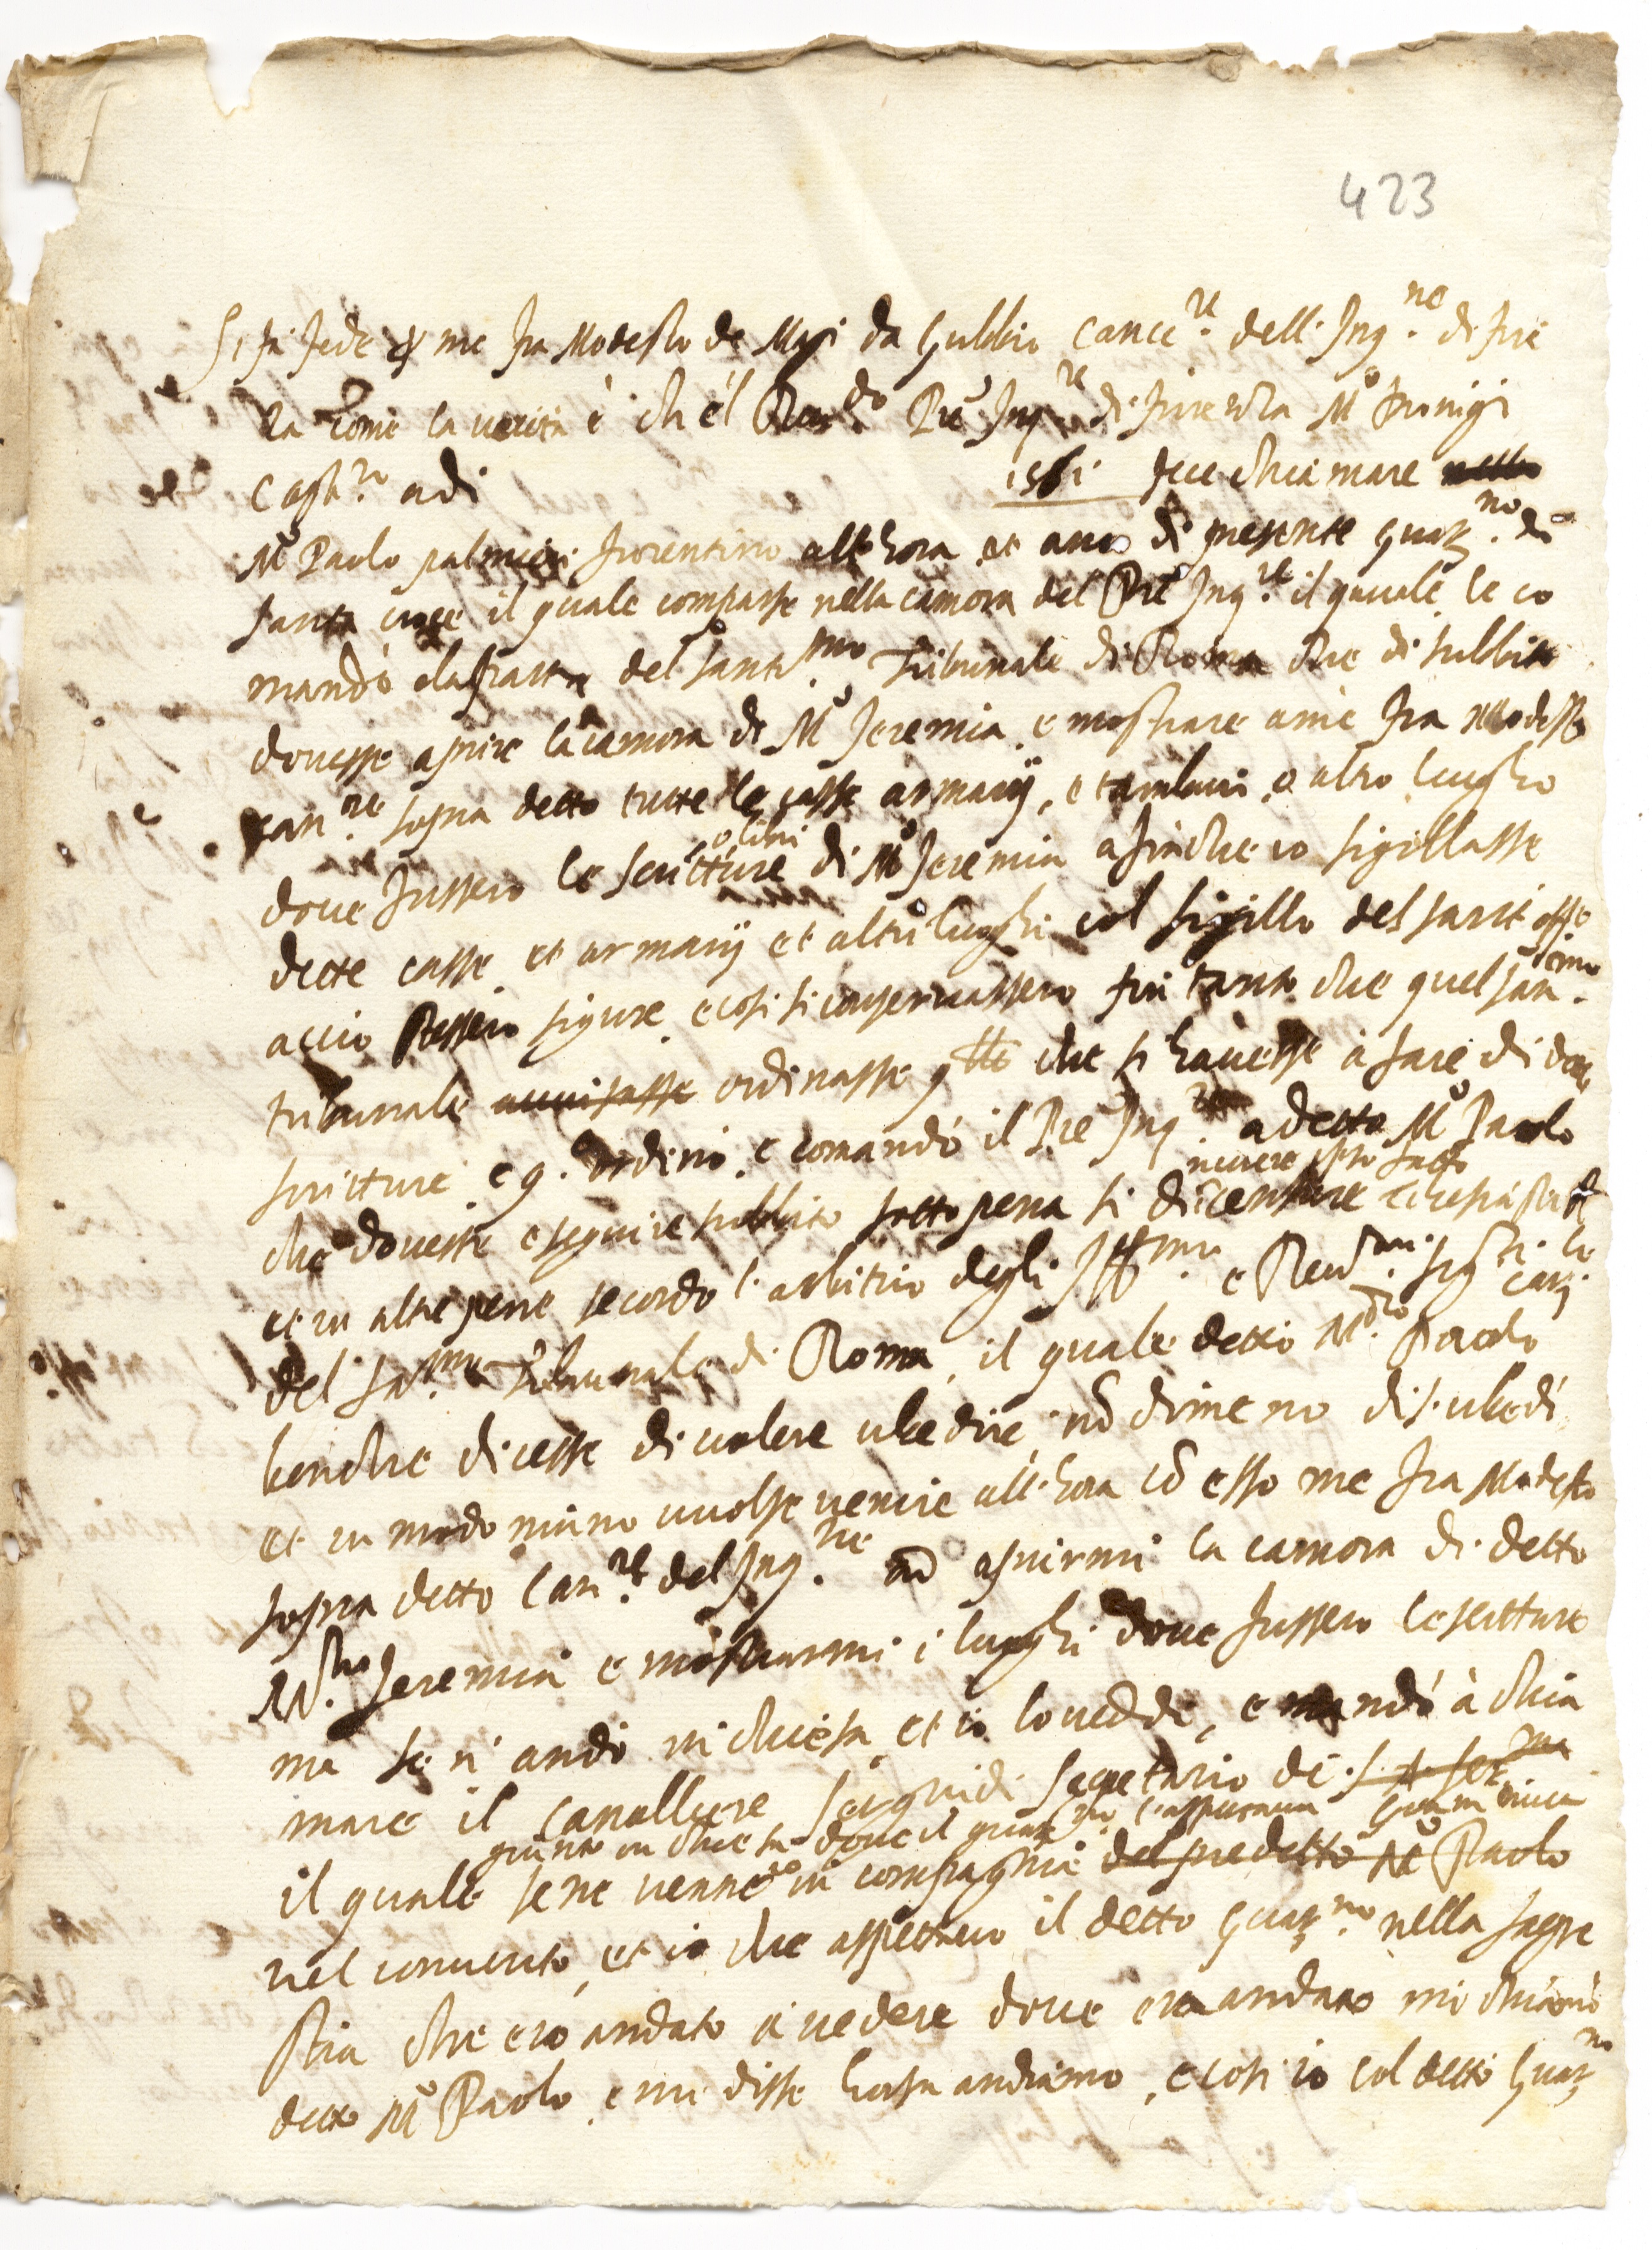 423
Si fa fede per me fra Modesto de Masi da Gubbio Cance.re dell'Inq.ne di fire
za Come la verità è ch'el Reve.do Pre Inq.re di firenza Mro Dionigi
Cost.ro adi 1581 fece chiamare nella
Mro Paolo palmieri fiorentino allhora et anco di presente guar.no di
santa croce il quale comparse nella camora del Pre Inq.re il quale le co
mandò da parte del santis.mo Tribunale di Roma che di subbito
dovesse aprire la camora di Mro Jeremia e mostrare a me fra Modesto
can.re sopra detto tutte le casse armarij, e tamburi o altro luogho
o libri
dove fussero le scritture di Mro Jeremia afinche io sigillasse
dette casse et armarij et altri luoghi col sigillo del santo offo
accio stessero sigure e cosi si conservassero fin tanto che quel san.mo
tribunale avvisasse ordinasse qllo che si havesse à fare di dette
scritture e q. ordinò e comandò il Pre Inq.re a detto Mro Paolo
incurere ipso facto
che dovesse eseguire subbito sotto pena di censure
et in altre pene secondo l'arbitrio degli Ill.mi e Reve.mi sig.ri Car.li
del sa.mo Tribunale di Roma, il quale detto M.ro Paolo
benche dicesse di volere ubedire, nō dimeno disubedì
et in modo niuno vuolse venire all'hora cō esso me fra Modesto
sopra detto Can.re del Inq.ne ad aprirmi la camora di detto
M.ro Jeremia e mostrarmi i luoghi dove fussero le scritture
ma se n'andò in chiesa et io lo veddi, e mandò à chia
mare il cavalliere serguidi secretario di S. A. Ser.ma
giunto in chiesa dove il guar.no l'aspettava
il quale se ne venne in compagnia del predetto Mro Paolo
nel convento, et io che aspettavo il detto guar.no nella sagre
stia che ero andato à vedere dove era andato mi chiamò
detto Mro Paolo e mi disse horsu andiamo, e cosi io col detto guar.no